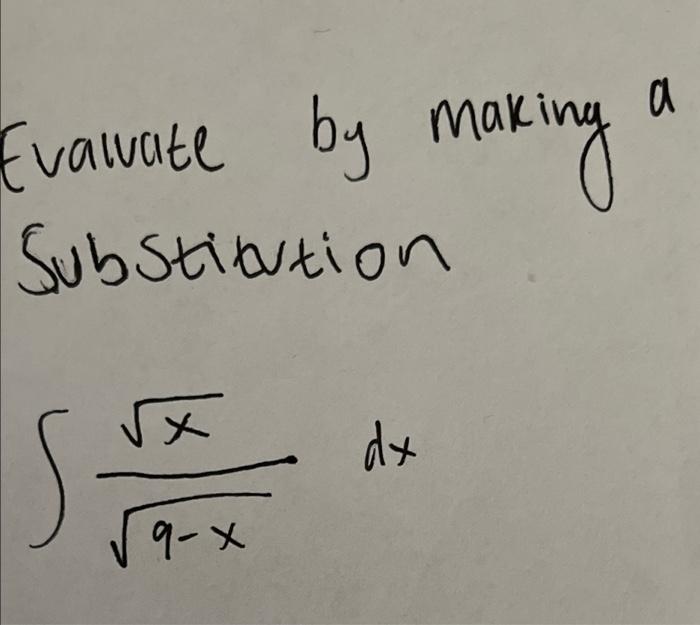 Evaluate by making a
Substitution
∫ √x / √9-x dx